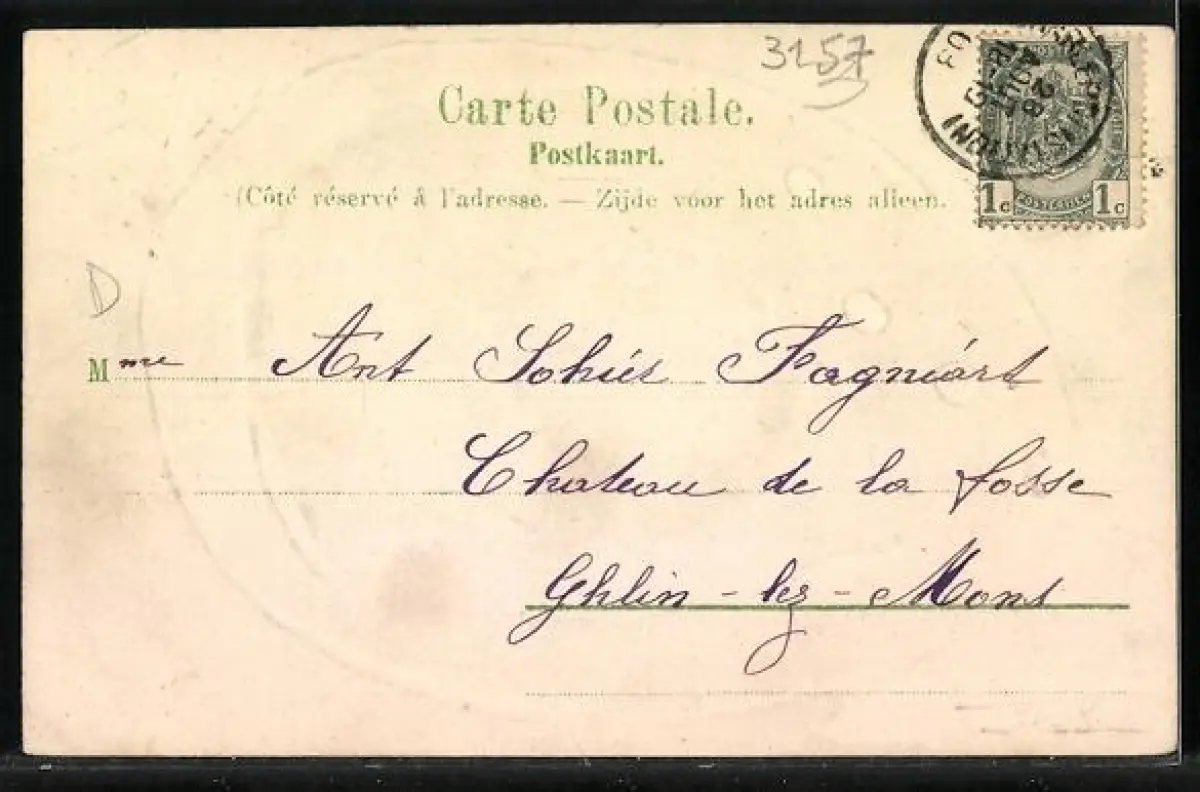 3157
Carte Postale.
Postkaart.
(Côté réservé à l'adresse. — Zijde voor het adres alleen.
1c POSTERIJEN 1c
D
Mme Ant Sohier Fagniart
Chateau de la fosse
Ghlin - lez - Mons